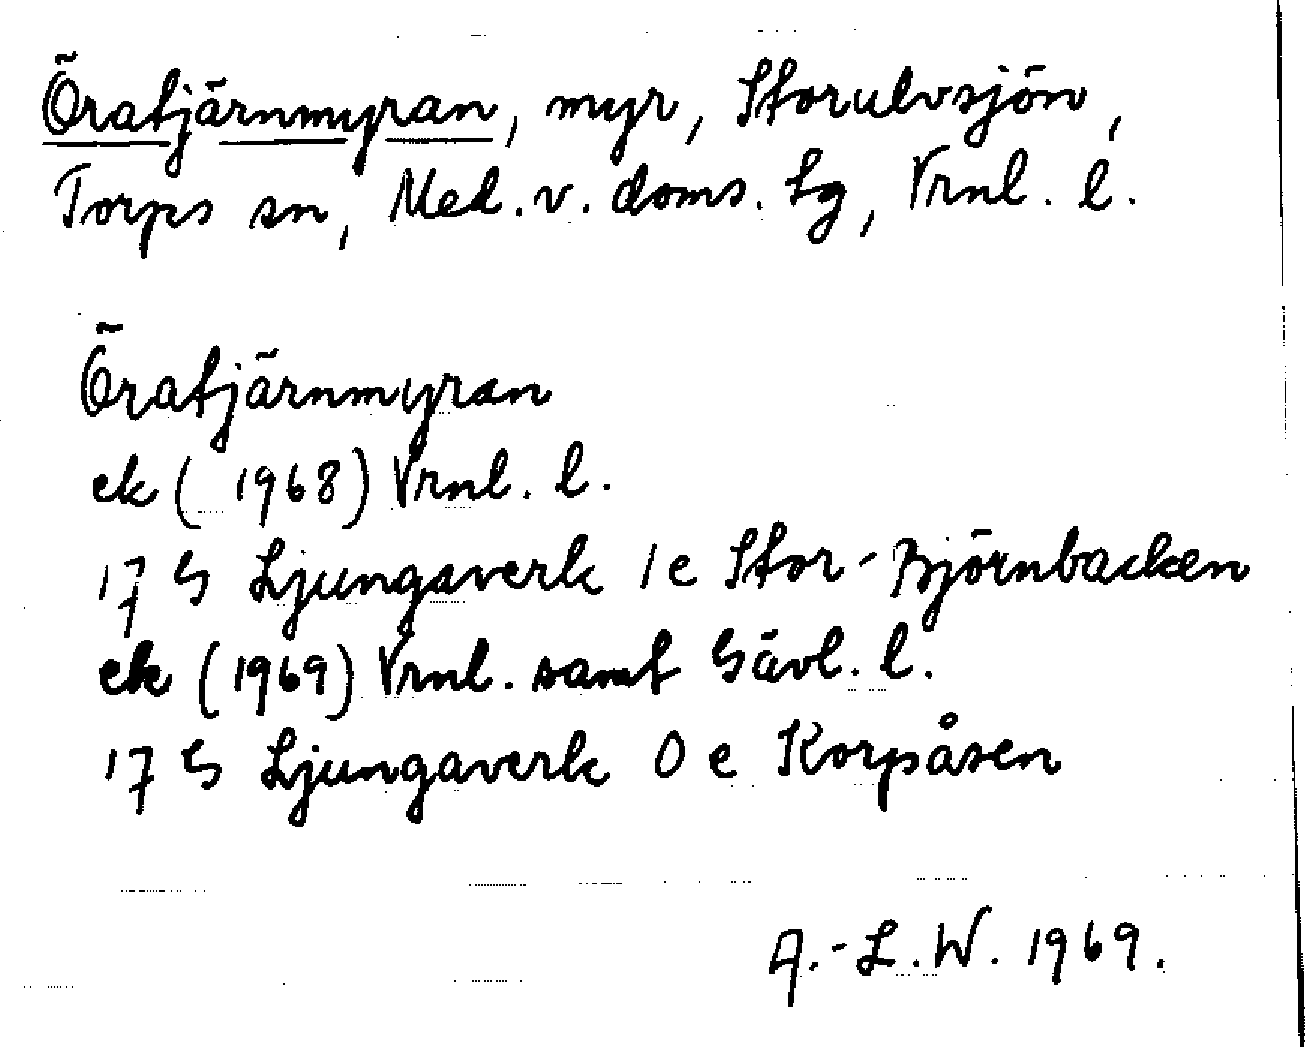 Öratjärnmyran, myr, Storulvsjön,
Torps sn, Med. v. doms. lg, Vrnl. l.
Öratjärnmyran
ek (1968) Vrnl. l.
17 G Ljungaverk 1 e Stor-Björnbacken
ek (1969) Vrnl. samt Gävl. l.
17 G Ljungaverk 0 e Korpåsen
A.-L. W. 1969.